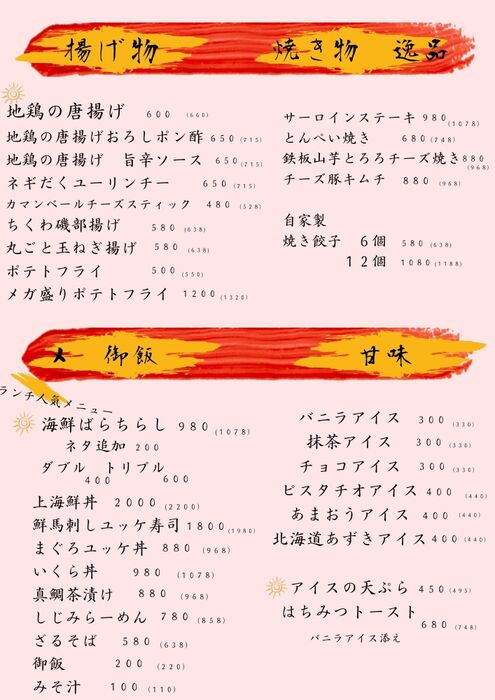 揚げ物
焼き物 逸品
地鶏の唐揚げ 600 (660)
地鶏の唐揚げおろしポン酢 650 (715)
地鶏の唐揚げ 旨辛ソース 650 (715)
ネギだくユーリンチー 650 (715)
カマンベールチーズスティック 480 (528)
ちくわ磯部揚げ 580 (638)
丸ごと玉ねぎ揚げ 580 (638)
ポテトフライ 500 (550)
メガ盛りポテトフライ 1200 (1320)
サーロインステーキ 980 (1078)
とんぺい焼き 680 (748)
鉄板山芋とろろチーズ焼き 880 (968)
チーズ豚キムチ 880 (968)
自家製
焼き餃子 6個 580 (638)
12個 1080 (1188)
〆 御飯
甘味
ランチ人気メニュー
海鮮ばらちらし 980 (1078)
ネタ追加 200
ダブル トリプル
400 600
上海鮮丼 2000 (2200)
鮮馬刺しユッケ寿司 1800 (1980)
まぐろユッケ丼 880 (968)
いくら丼 980 (1078)
真鯛茶漬け 880 (968)
しじみらーめん 780 (858)
ざるそば 580 (638)
御飯 200 (220)
みそ汁 100 (110)
バニラアイス 300 (330)
抹茶アイス 300 (330)
チョコアイス 300 (330)
ピスタチオアイス 400 (440)
あまおうアイス 400 (440)
北海道あずきアイス 400 (440)
アイスの天ぷら 450 (495)
はちみつトースト 680 (748)
バニラアイス添え